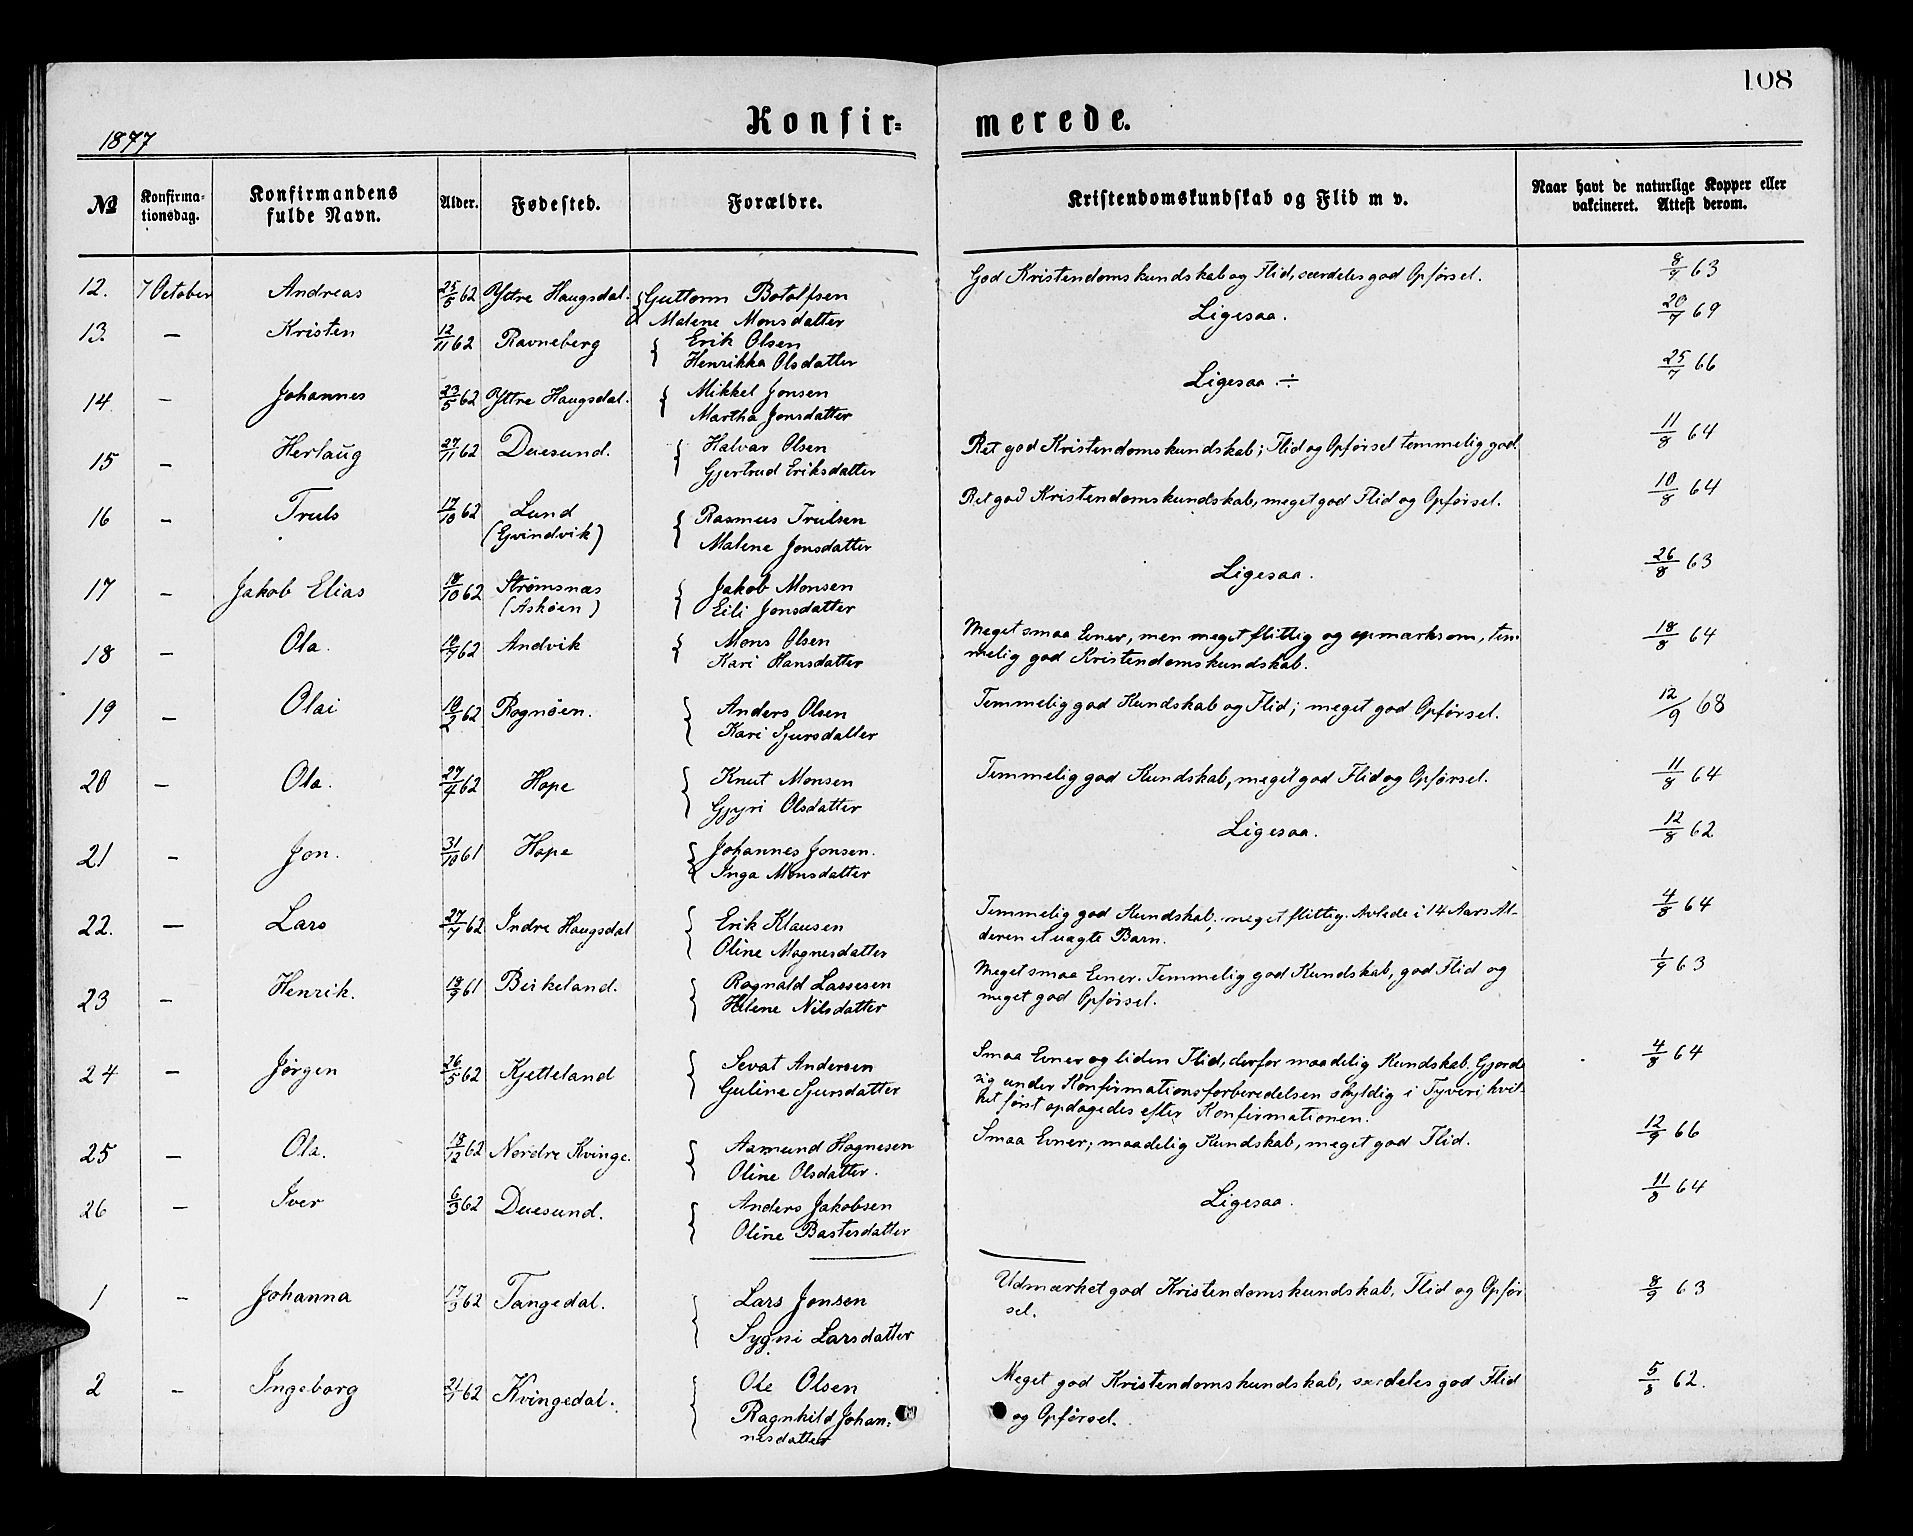 108
Konfir= merede.
1877
No Konfirma-tionsdag. Konfirmandens fulde Navn. Alder. Fødested. Forældre. Kristendomskundskab og Flid m v. Naar havt de naturlige Kopper eller vakcineret. Attest derom.
12. 7 October Andreas 25/5 62 Yttre Haugsdal. { Guttorm Botolfsen God Kristendomskundskab og Flid, særdeles god Opførsel. 8/9 63
Malene Monsdatter
13. — Kristen 12/11 62 Ravneberg { Erik Olsen Ligesaa. 20/7 69
Henrikka Olsdatter
14 — Johannes 23/5 62 Yttre Haugsdal. { Mikkel Jonsen Ligesaa. ÷ 25/7 66
Martha Jonsdatter
15 — Herlaug 27/11 62 Duesund. { Halvar Olsen Ret god Kristendomskundskab; Flid og Opførsel temmelig god. 11/8 64
Gjertrud Eriksdatter
16 — Truls 17/10 62 Lund { Rasmus Trulsen Ret god Kristendomskundskab, meget god Flid og Opførsel. 10/8 64
(Eyvindvik) Malene Jonsdatter
17 — Jakob Elias 18/10 62 Strømsnæs { Jakob Monsen Ligesaa. 26/8 63
(Askøen) Eili Jonsdatter
18 — Ola. 62 Andvik { Mons Olsen Meget smaa Evner, men meget flittig og opmærksom, tem- 18/8 64
Kari Hansdatter melig god Kristendomskundskab.
19 — Olai 62 Rognøen. { Anders Olsen Temmelig god Kundskab og Flid; meget god Opførsel. 12/9 68
Kari Sjursdatter
20 — Ola. 27/4 62 Hope { Knut Monsen Temmelig god Kundskab, meget god Flid og Opførsel. 11/8 64
Gjyri Olsdatter
21 — Jon. 31/10 61 Hope { Johannes Jonsen. Ligesaa. 12/8 62
Inga Monsdatter
22. — Lars 27/7 62 Indre Haugsdal { Erik Klausen Temmelig god Kundskab; meget flittig. Avlede i 14 Aars Al- 4/8 64
Oline Magnesdatter deren et uægte Barn.
23 — Henrik. 18/9 61 Birkeland. { Ragnald Lassesen Meget smaa Evner. Temmelig god Kundskab, god Flid og 1/9 63
Helene Nilsdatter meget god Opførsel.
24 — Jørgen 26/5 62 Kjetteland { Sevat Andersen Smaa Evner og liden Flid, derfor maadelig Kundskab. Gjorde 4/8 64
Guline Sjursdatter sig under Konfirmationsforberedelsen skyldig i Tyveri hvil-
ket først opdagedes efter Konfirmationen.
25 — Ola. 18/12 62 Nordre Kvinge. { Aamund Hagnesen Smaa Evner; maadelig Kundskab, meget god Flid. 12/9 66
Oline Olsdatter.
26 — Iver 6/3 62 Duesund. { Anders Jakobsen Ligesaa. 11/8 64
Oline Bastesdatter
1 — Johanna 17/3 62 Tangedal. { Lars Jonsen Udmærket god Kristendomskundskab, Flid og Opfør 8/9 63
Sygni Larsdatter sel.
2 — Ingeborg 62 Kvingedal. { Ole Olsen Meget god Kristendomskundskab, særdeles god Flid 5/8 62.
Ragnhild Johan- og Opførsel.
nesdatter